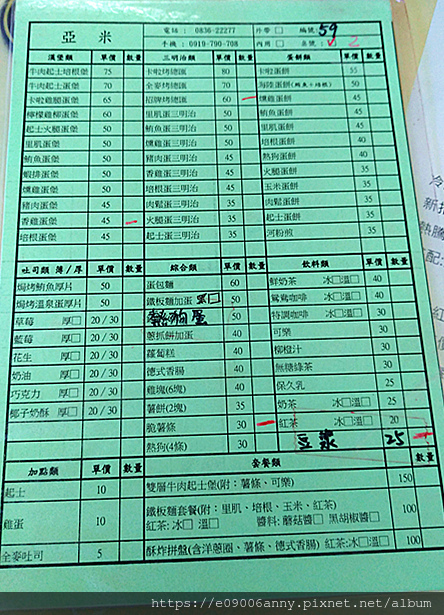 亞米 電話：0836-22277 外帶□ 編號：59
手機：0919-790-708 內用□ 桌號：2
漢堡類 單價 數量 三明治類 單價 數量 蛋餅類 單價 數量
牛肉起士培根堡 75 卡啦總匯 80 卡啦蛋餅 55
牛肉起士蛋堡 70 全麥烤總匯 70 海陸蛋餅(鮪魚+培根) 50
卡啦雞腿蛋堡 65 招牌烤總匯 60 燻雞蛋餅 45
檸檬雞柳蛋堡 60 里肌蛋三明治 50 鮪魚蛋餅 45
起士火腿蛋堡 50 鮪魚蛋三明治 50 里肌蛋餅 45
里肌蛋堡 50 燻雞蛋三明治 50 培根蛋餅 40
鮪魚蛋堡 50 豬肉蛋三明治 45 熱狗蛋餅 40
蝦排蛋堡 50 燻雞蛋三明治 45 火腿蛋餅 35
燻雞蛋堡 50 培根蛋三明治 40 玉米蛋餅 35
豬肉蛋堡 45 肉鬆蛋三明治 35 肉鬆蛋餅 35
香雞蛋堡 45 火腿蛋三明治 35 起士蛋餅 35
培根蛋堡 45 起士蛋三明治 35 河粉煎 35
吐司類 薄/厚 單價 數量 綜合類 單價 數量 飲料類 單價 數量
焗烤鮪魚厚片 50 蛋包麵 60 鮮奶茶 冰□溫□ 40
焗烤溫泉蛋厚片 50 鐵板麵加蛋 50 鴛鴦咖啡 冰□溫□ 40
草莓 厚□ 20/30 特調咖啡 冰□溫□ 30
藍莓 厚□ 20/30 蔥抓餅加蛋 40 可樂 30
花生 厚□ 20/30 蘿蔔糕 40 柳橙汁 30
奶油 厚□ 20/30 德式香腸 40 無糖綠茶 30
巧克力 厚□ 20/30 雞塊(6塊) 40 保久乳 25
椰子奶酥 厚□ 20/30 薯餅(2塊) 35 奶茶 冰□溫□ 25
脆薯條 30 紅茶 冰□溫□ 20
熱狗(4條) 30 豆漿 25
加點類 單價 數量 套餐類 數量
起士 10 雙層牛肉起士堡(附：薯條、可樂) 150
雞蛋 10 鐵板麵套餐(附：里肌、培根、玉米、紅茶) 100
紅茶:冰□ 溫□ 醬料:蘑菇醬□ 黑胡椒醬□
全麥吐司 5 酥炸拼盤(含洋蔥圈、薯條、德式香腸) 紅茶:冰□溫□ 100
https://e09006anny.pixnet.net/album